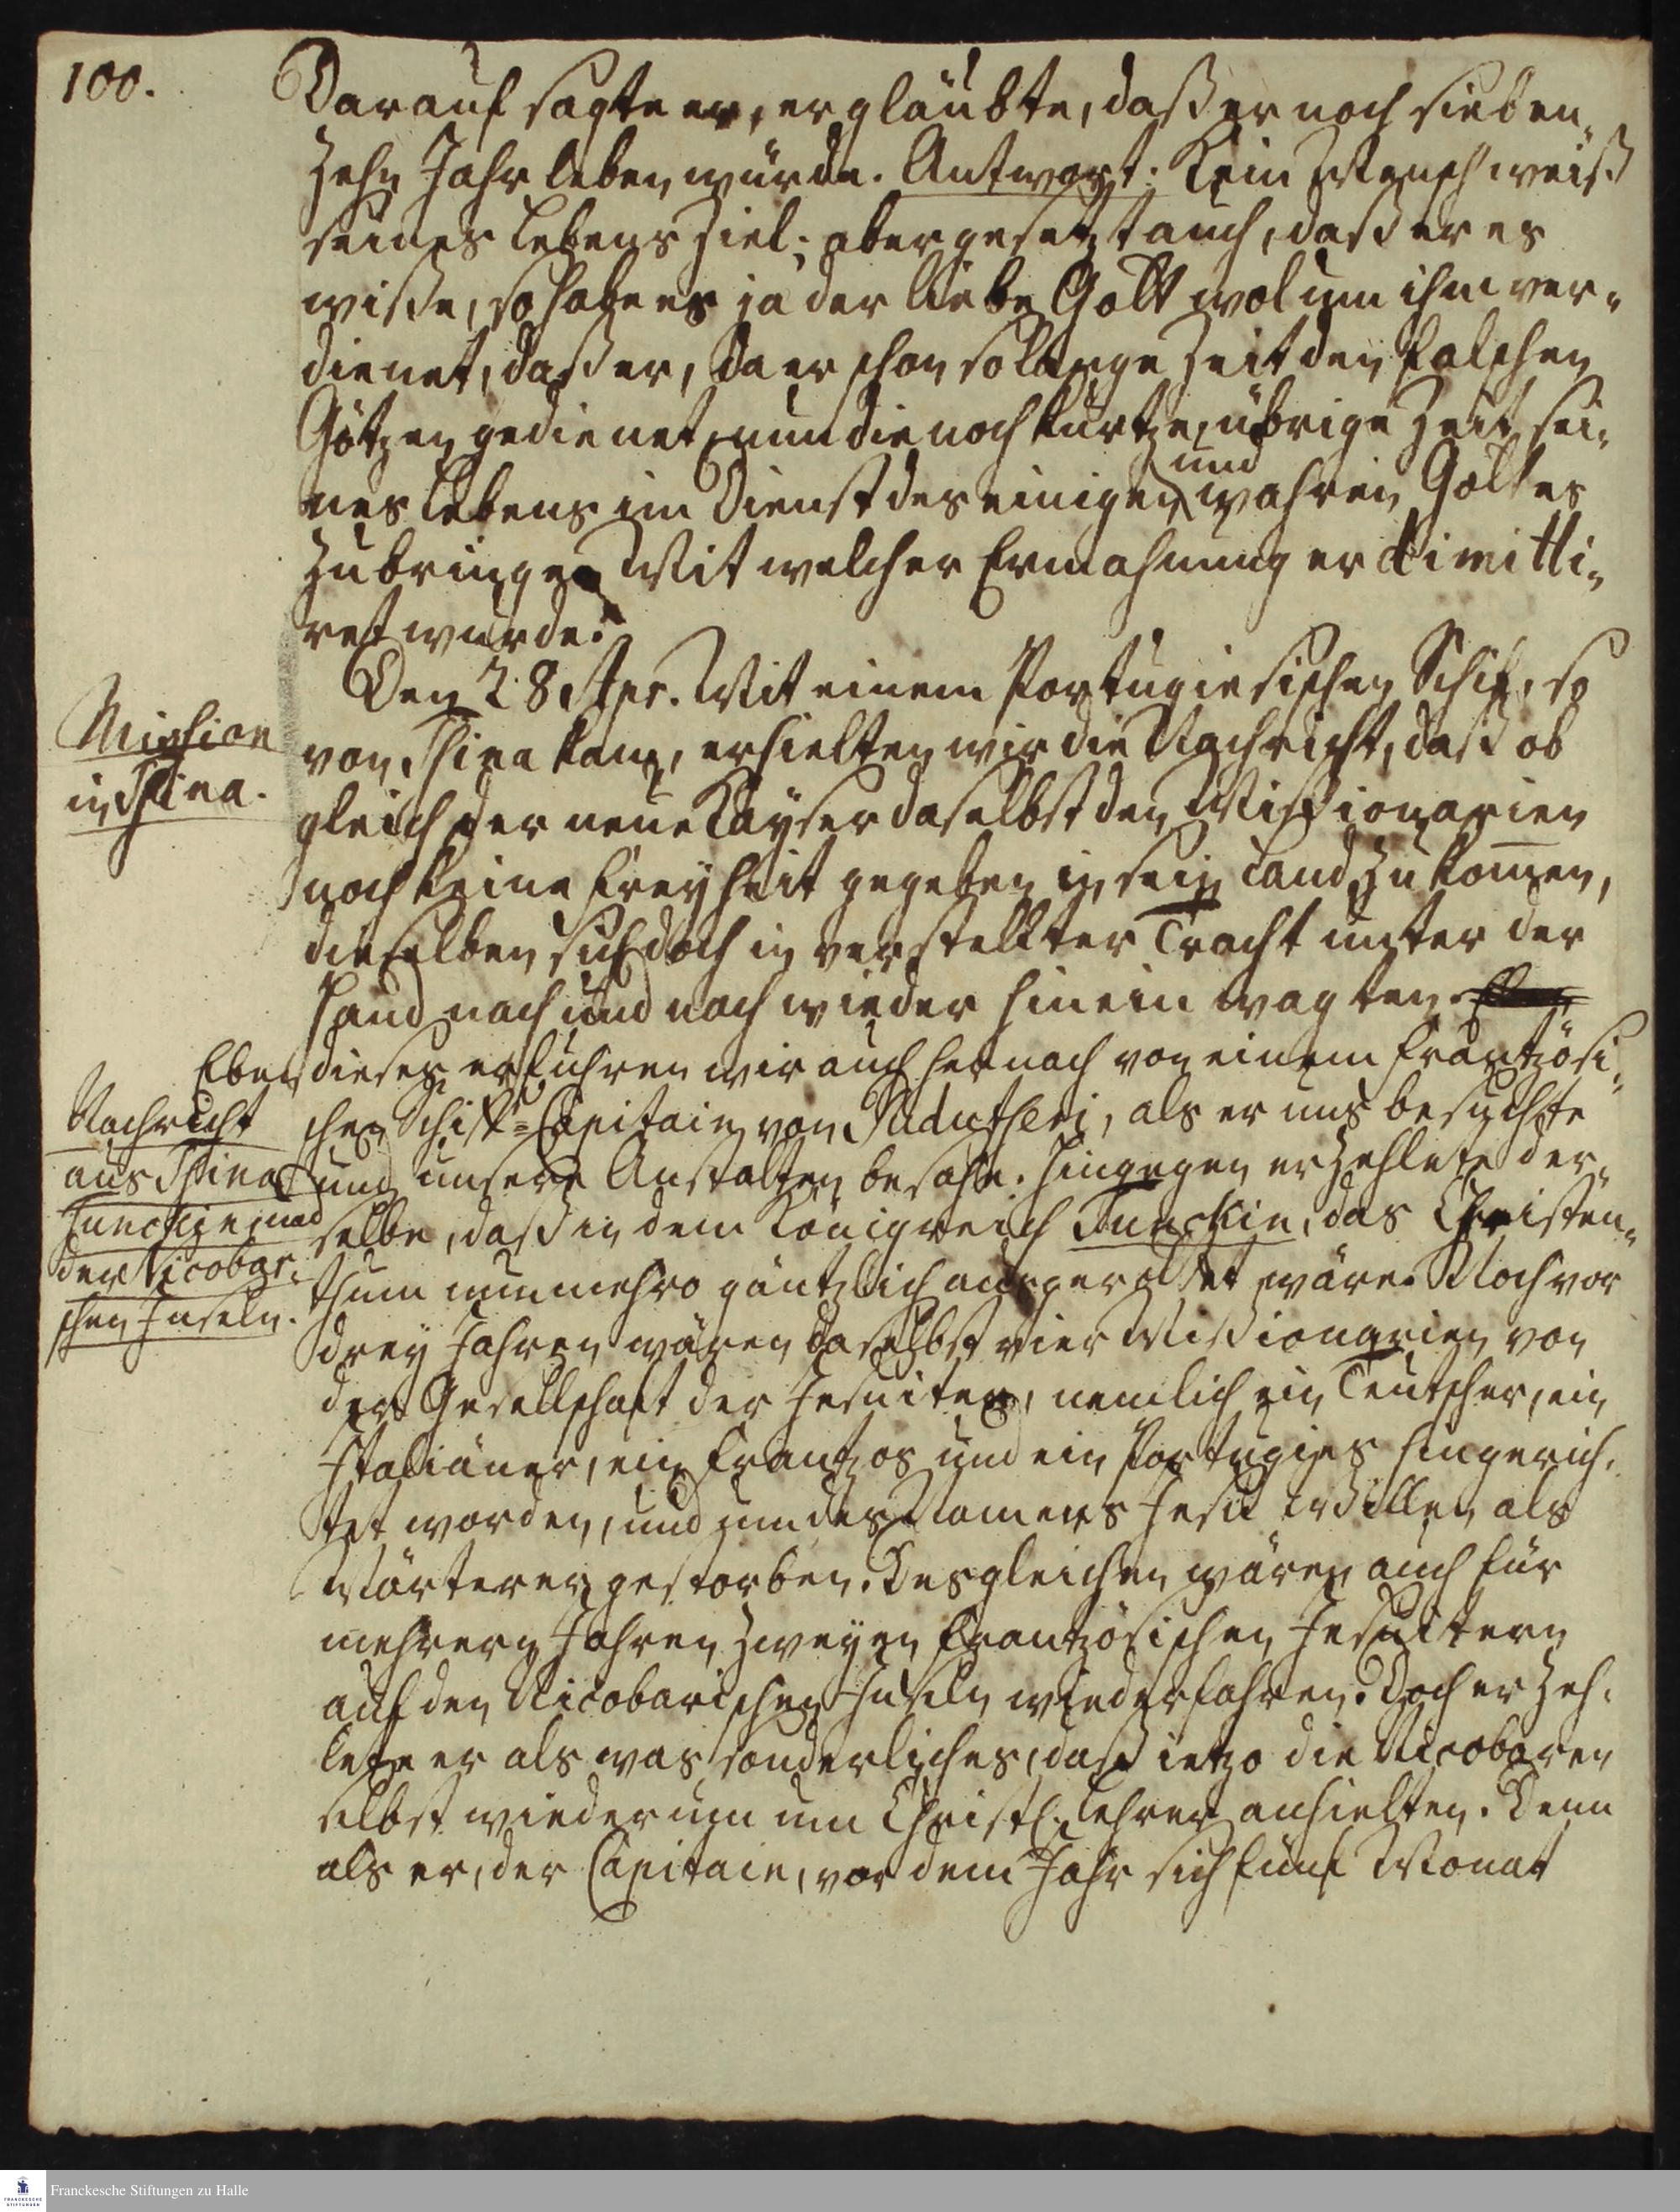 100.
Darauf sagte er, er gläubte, daß er noch sieben„
zehn Jahr leben würde. Antwort: Kein Mensch weiß
seines Lebens Ziel; aber gesetzt auch, daß er es
wiße, so habe es ja der liebe Gott wol um ihm ver„
dienet, daß er, da er schon so lange Zeit den falschen
Götzen gedienet, nun die noch kurtze übrige Zeit sei„
und
nes Lebens im Dienst des einigen wahren Gottes
zubringe. Mit welcher Ermahnung er dimitti„
ret wurde.
Den 28 Apr. Mit einem Portugiesischen Schif, so
Mission
in Sina.
von Sina kam, erhielten wir die Nachricht, daß ob
gleich der neue Käyser daselbst den Mißionarien
noch keine Freyheit gegeben in sein Land zu kom̄en,
dieselben sich doch in verstellter Tracht unter der
Hand nach und nach wieder hinein wagten.
Eben dieses erfuhren wir auch hernach von einem Frantzösi„
schen Schiff-Capitain von Pudutscheri, als er uns besuchte
Nachricht
aus Sina
Tunckin und
den Nicobari„
schen Inseln.
und unsere Anstalten besahe. Hingegen erzehlete der„
selbe, daß in dem Königreich Tunckin, das Christen„
thum nunmehro gäntzlich ausgerottet wäre. Noch vor
drey Jahren wären daselbst vier Mißionarien von
der Gesellschaft der Jesuiter, nemlich ein Teutscher, ein
Italiäner, ein Frantzos und ein Portugies hingerich„
tet worden, und um des Namens Jesu willen als
Märterer gestorben. Desgleichen wäre auch für
mehrern Jahren zweyen Frantzösischen Jesuitern
auf den Nicobarischen Inseln wiederfahren. Doch erzeh„
lete er als was sonderliches, daß ietzo die Nicobaren
selbst wiederum um Christl. Lehrer anhielten. Denn
als er, der Capitain, vor dem Jahr sich fünf Monat
FRANCKESCHE STIFTUNGEN
Franckesche Stiftungen zu Halle